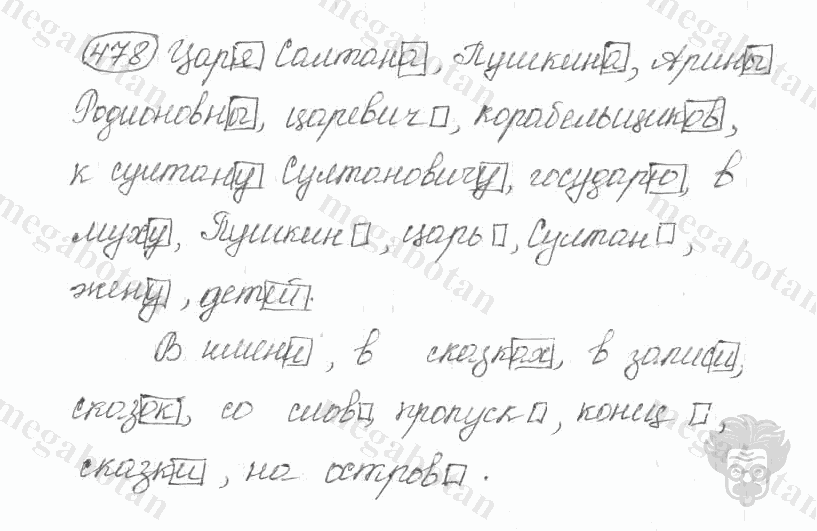 478 Царя Салтана, Пушкина, Арины
Родионовны, царевич, корабельщиков,
к султану Султановичу, государю, в
муху, Пушкин, царь, Султан,
жену, детей.
В имени, в сказках, в записи,
сказок, со слов, пропуск, конец,
сказки, на остров.
megabotan